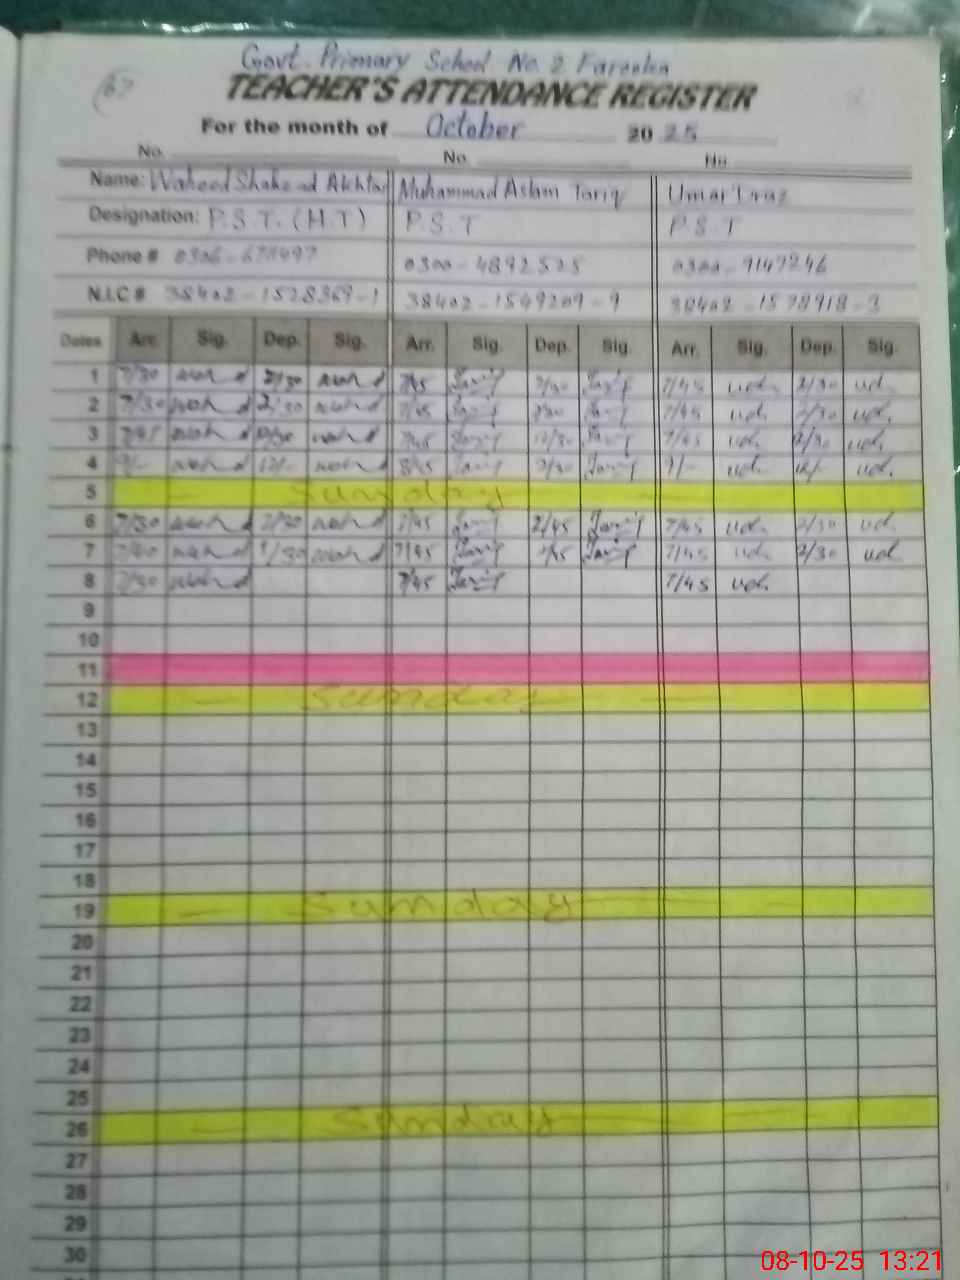 Govt. Primary School No. 2 Farooka
67
TEACHER'S ATTENDANCE REGISTER
For the month of October 2025
No. No. No.
Name: Waheed Shahzad Akhtar Muhammad Aslam Tariq Umar
Designation: P.S.T. (H.T) P.S.T P.S.T
Phone # 0300-4892525 0300-9147246
N.I.C # 38402-1528369-1 38402-1549209-9 38402-1578918-3
Dates Arr. Sig. Dep. Sig. Arr. Sig. Dep. Sig. Arr. Sig. Dep. Sig.
1 7/30 2/30 7/45 Tariq 2/30 Tariq 7/45 ud. 2/30 ud.
2 7/30 2/30 7/45 Tariq Tariq 7/45 ud. 2/30 ud.
3 7/45 7/45 Tariq 12/30 Tariq 7/45 ud. 12/30 ud.
4 9/- 12/- 8/45 Tariq Tariq 9/- ud. 12/- ud.
5 Sunday
6 7/30 2/30 7/45 Tariq 2/45 Tariq 7/45 ud. 2/30 ud.
7 7/45 Tariq 2/45 Tariq 7/45 ud. 2/30 ud.
8 7/30 7/45 Tariq 7/45 ud.
9
10
11
12 Sunday
13
14
15
16
17
18
19 Sunday
20
21
22
23
24
25
26 Sunday
27
28
29
30
08-10-25 13:21